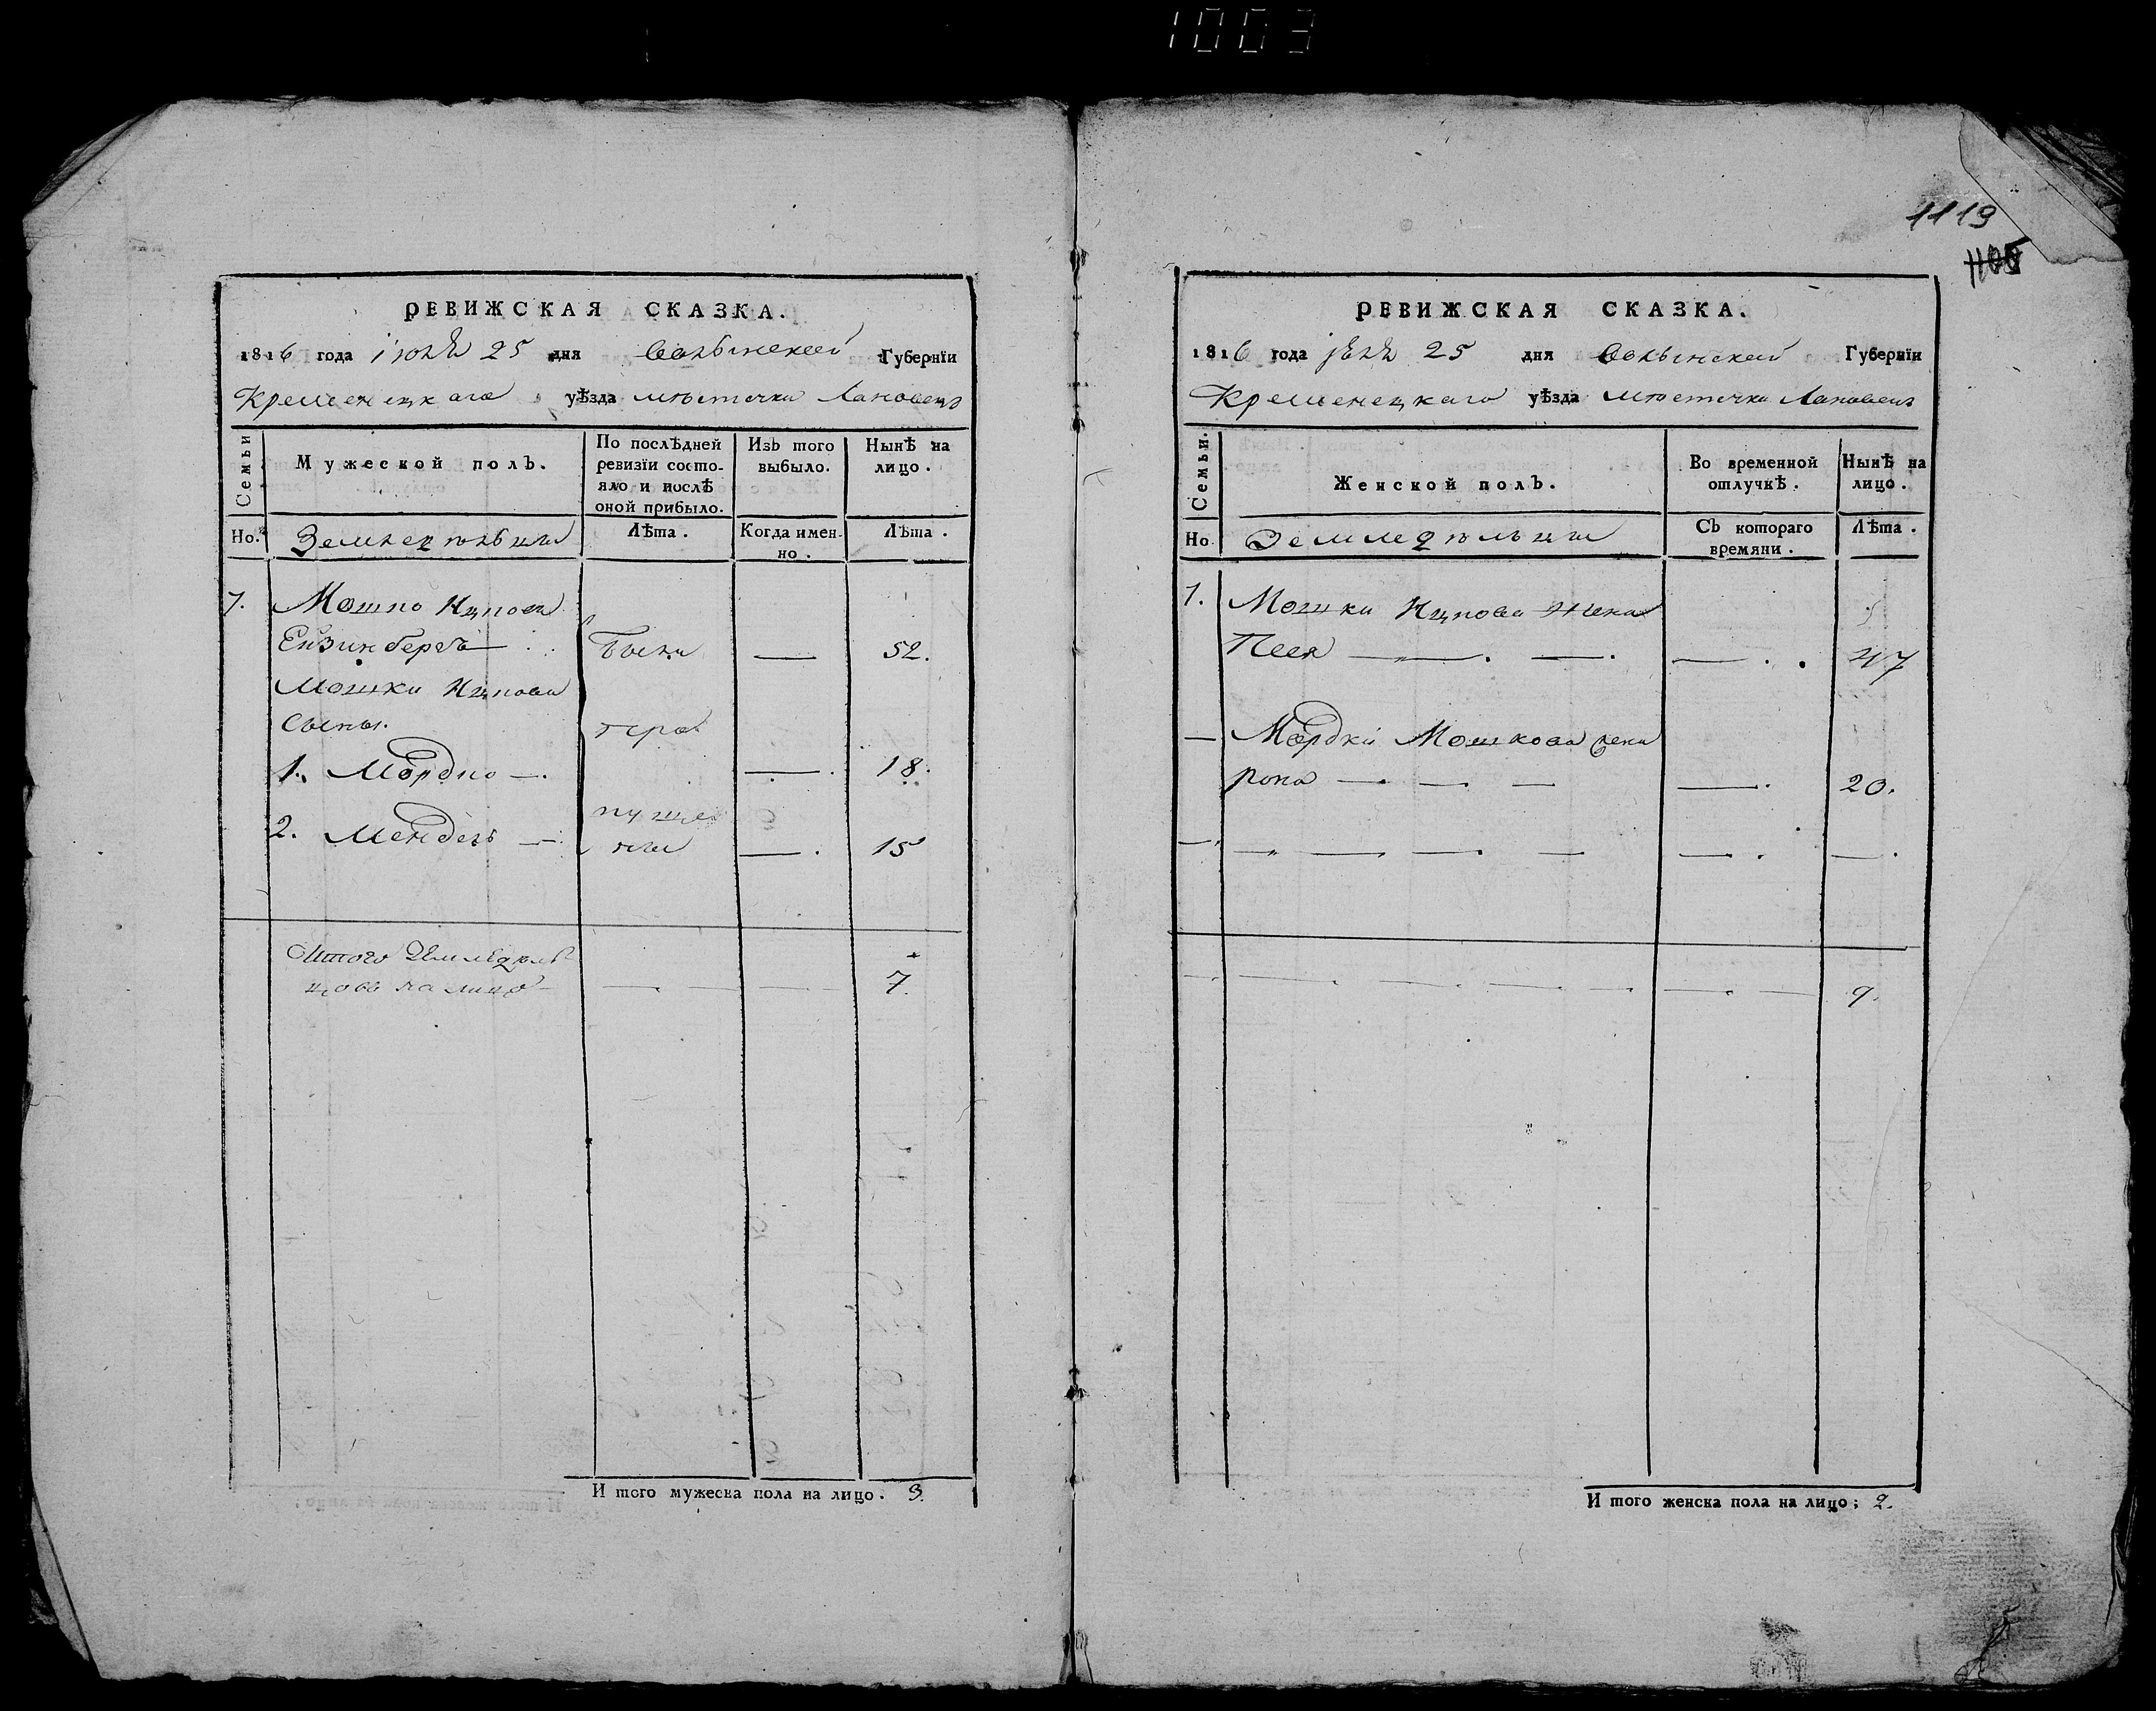 1003
РЕВИЖСКАЯ СКАЗКА.
1816 года іюля 25 дня Волынской Губернїи
Кременецкаго уѣзда мѣстечка Лановецъ
Семьи
Мужеской полъ.
По послѣдней ревизїи состо-
яло и послѣ оной прибыло.
Изъ того выбыло.
Нынѣ на лицо.
Но.
Земледѣльцы
Лѣта.
Когда имен-
но.
Лѣта.
7. Мошко Ицковъ
были — 52.
Мошки Ицкова
Сыны.
1. Мордко — — 18.
2. Мендель — — 15
Итого Земледѣль-
цовъ на лицо — — — — 7.
И того мужеска пола на лицо. 3.
1119
1105
РЕВИЖСКАЯ СКАЗКА.
1816 года 25 дня Волынской Губернїи
Кременецкаго уѣзда мѣстечка Лановецъ
Семьи.
Женской полъ.
Во временной отлучкѣ.
Нынѣ на лицо.
Но
Земледѣльцы
Съ котораго времяни.
Лѣта.
7. Мошки Ицкова жена
Песя — — — 47
— Мордки Мошкова жена
— — — — 20.
— — — — — — —
— — — — — — — 9.
И того женска пола на лицо; 2.